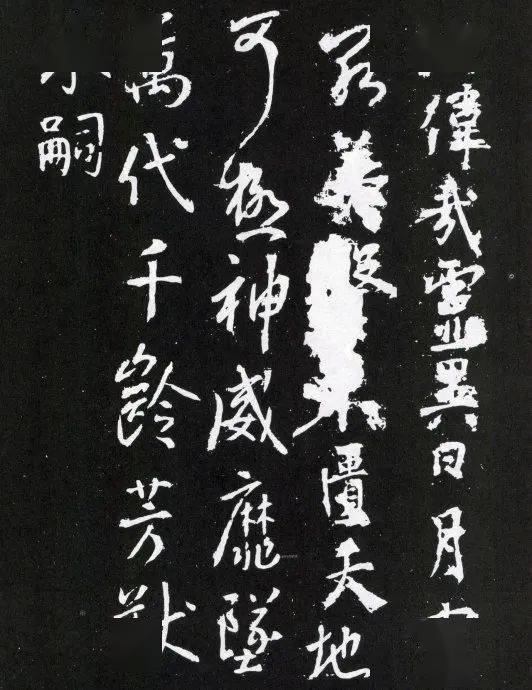 偉哉靈異日月
英不匱天地
可極神威靡墜
萬代千齡芳猷
永嗣